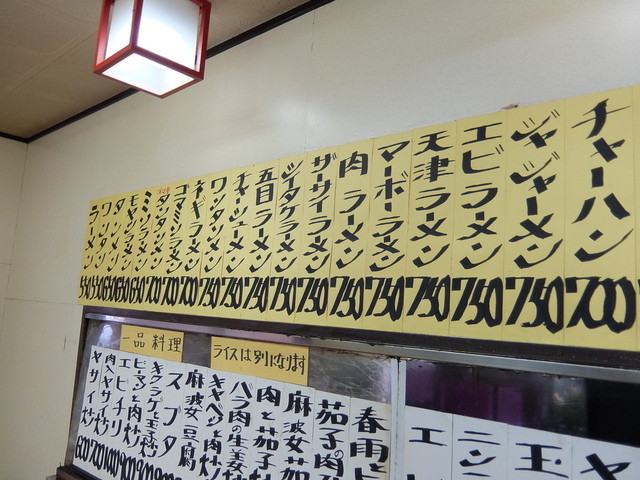 チャーハン 700
ジャジャーメン 750
エビラーメン 750
天津ラーメン 750
マーボーラメン 750
肉ラーメン 750
ザーサイラーメン 750
シイタケラーメン 750
五目ラーメン 750
チャーシューメン 750
ワンタンメン 750
ネギラーメン 750
ゴマミソラーメン 700
タンタンメン 700
ミソラーメン 700
モヤシラーメン 650
タンメン 650
ワンタン 550
ラーメン 550
一品料理
ライスは別になります
春雨と
茄子の肉
麻波女茄
肉と茄子
バラ肉の生姜
キャベツと肉炒
麻波女豆腐
スブタ
キクラゲと玉子炒
ピーマンと肉炒
エビチリ
肉ヤサイ炒 700
ヤサイ炒 600
ヤ
玉
ニンニ
エ